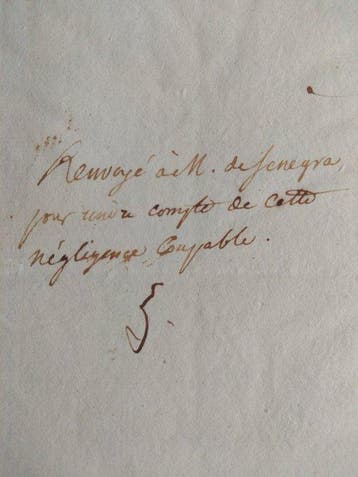 Renvoyé à M. de Senegra,
pour rendre compte de cette
négligence Coupable.